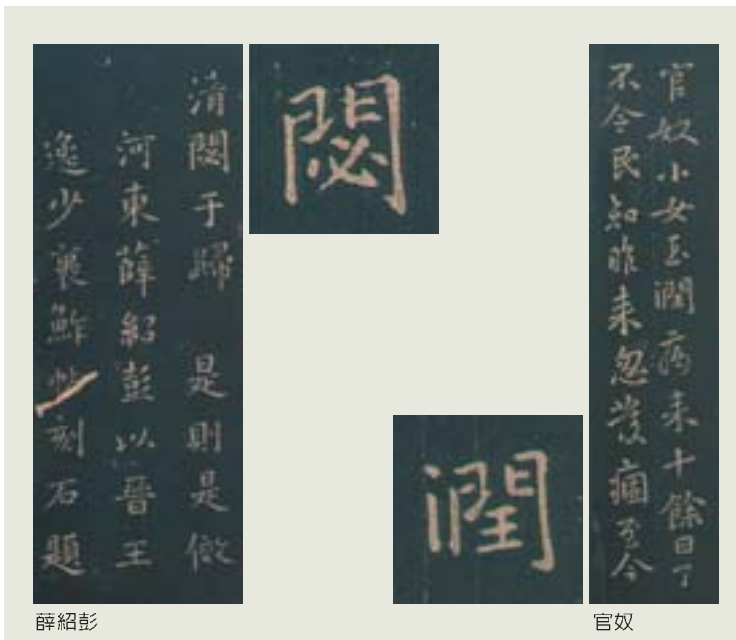 清閟于歸 是則是傚
河東薛紹彭以晉王
逸少裹鮓帖刻石題
薛紹彭
閟
潤
官奴小女玉潤病來十餘日了
不令民知昨來忽發痼至今
官奴